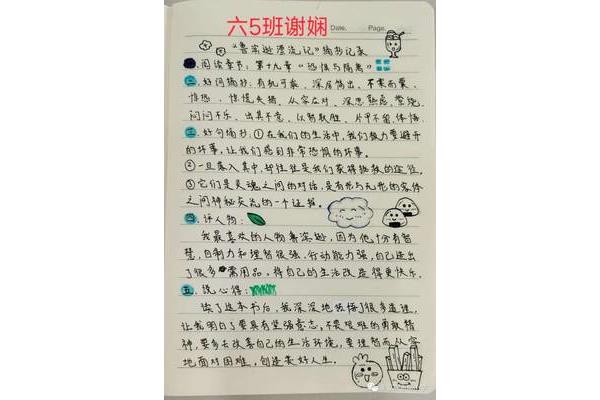 六5班谢娴
Date.
Page.
"鲁宾逊漂流记"摘抄记录
阅读章节：第十九章"恐惧与隔离"
二、好词摘抄：有机可乘、深居简出、不寒而栗、
惊恐、惊慌失措、从容应对、深思熟虑、萦绕、
闷闷不乐、出其不意、以智取胜、片甲不留、体悟.
三、好句摘抄：①在我们的生活中，我们极力要避开
的坏事，让我们感到非常恐惧的坏事.
②一旦落入其中，却往往是我们获得拯救的途径。
③它们是灵魂之间的对话，是有形与无形的实体
之间神秘交流的一个证据。
四、评人物：
我最喜欢的人物鲁滨逊，因为他十分有智
慧，自制力和理智很强，行动能力强，自己造出
了很多 需用品，将自己的生活改造得更快乐.
五、说心得：
读了这本书后，我深深地领悟了很多道理，
让我明白了要具有坚强意志，不畏艰难的勇敢精
神，要多去改善自己的生活环境，要理智而从容
地面对困难，创造美好人生.